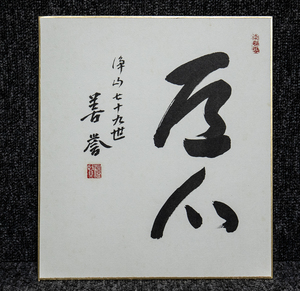 道心
浄山七十九世
善誉